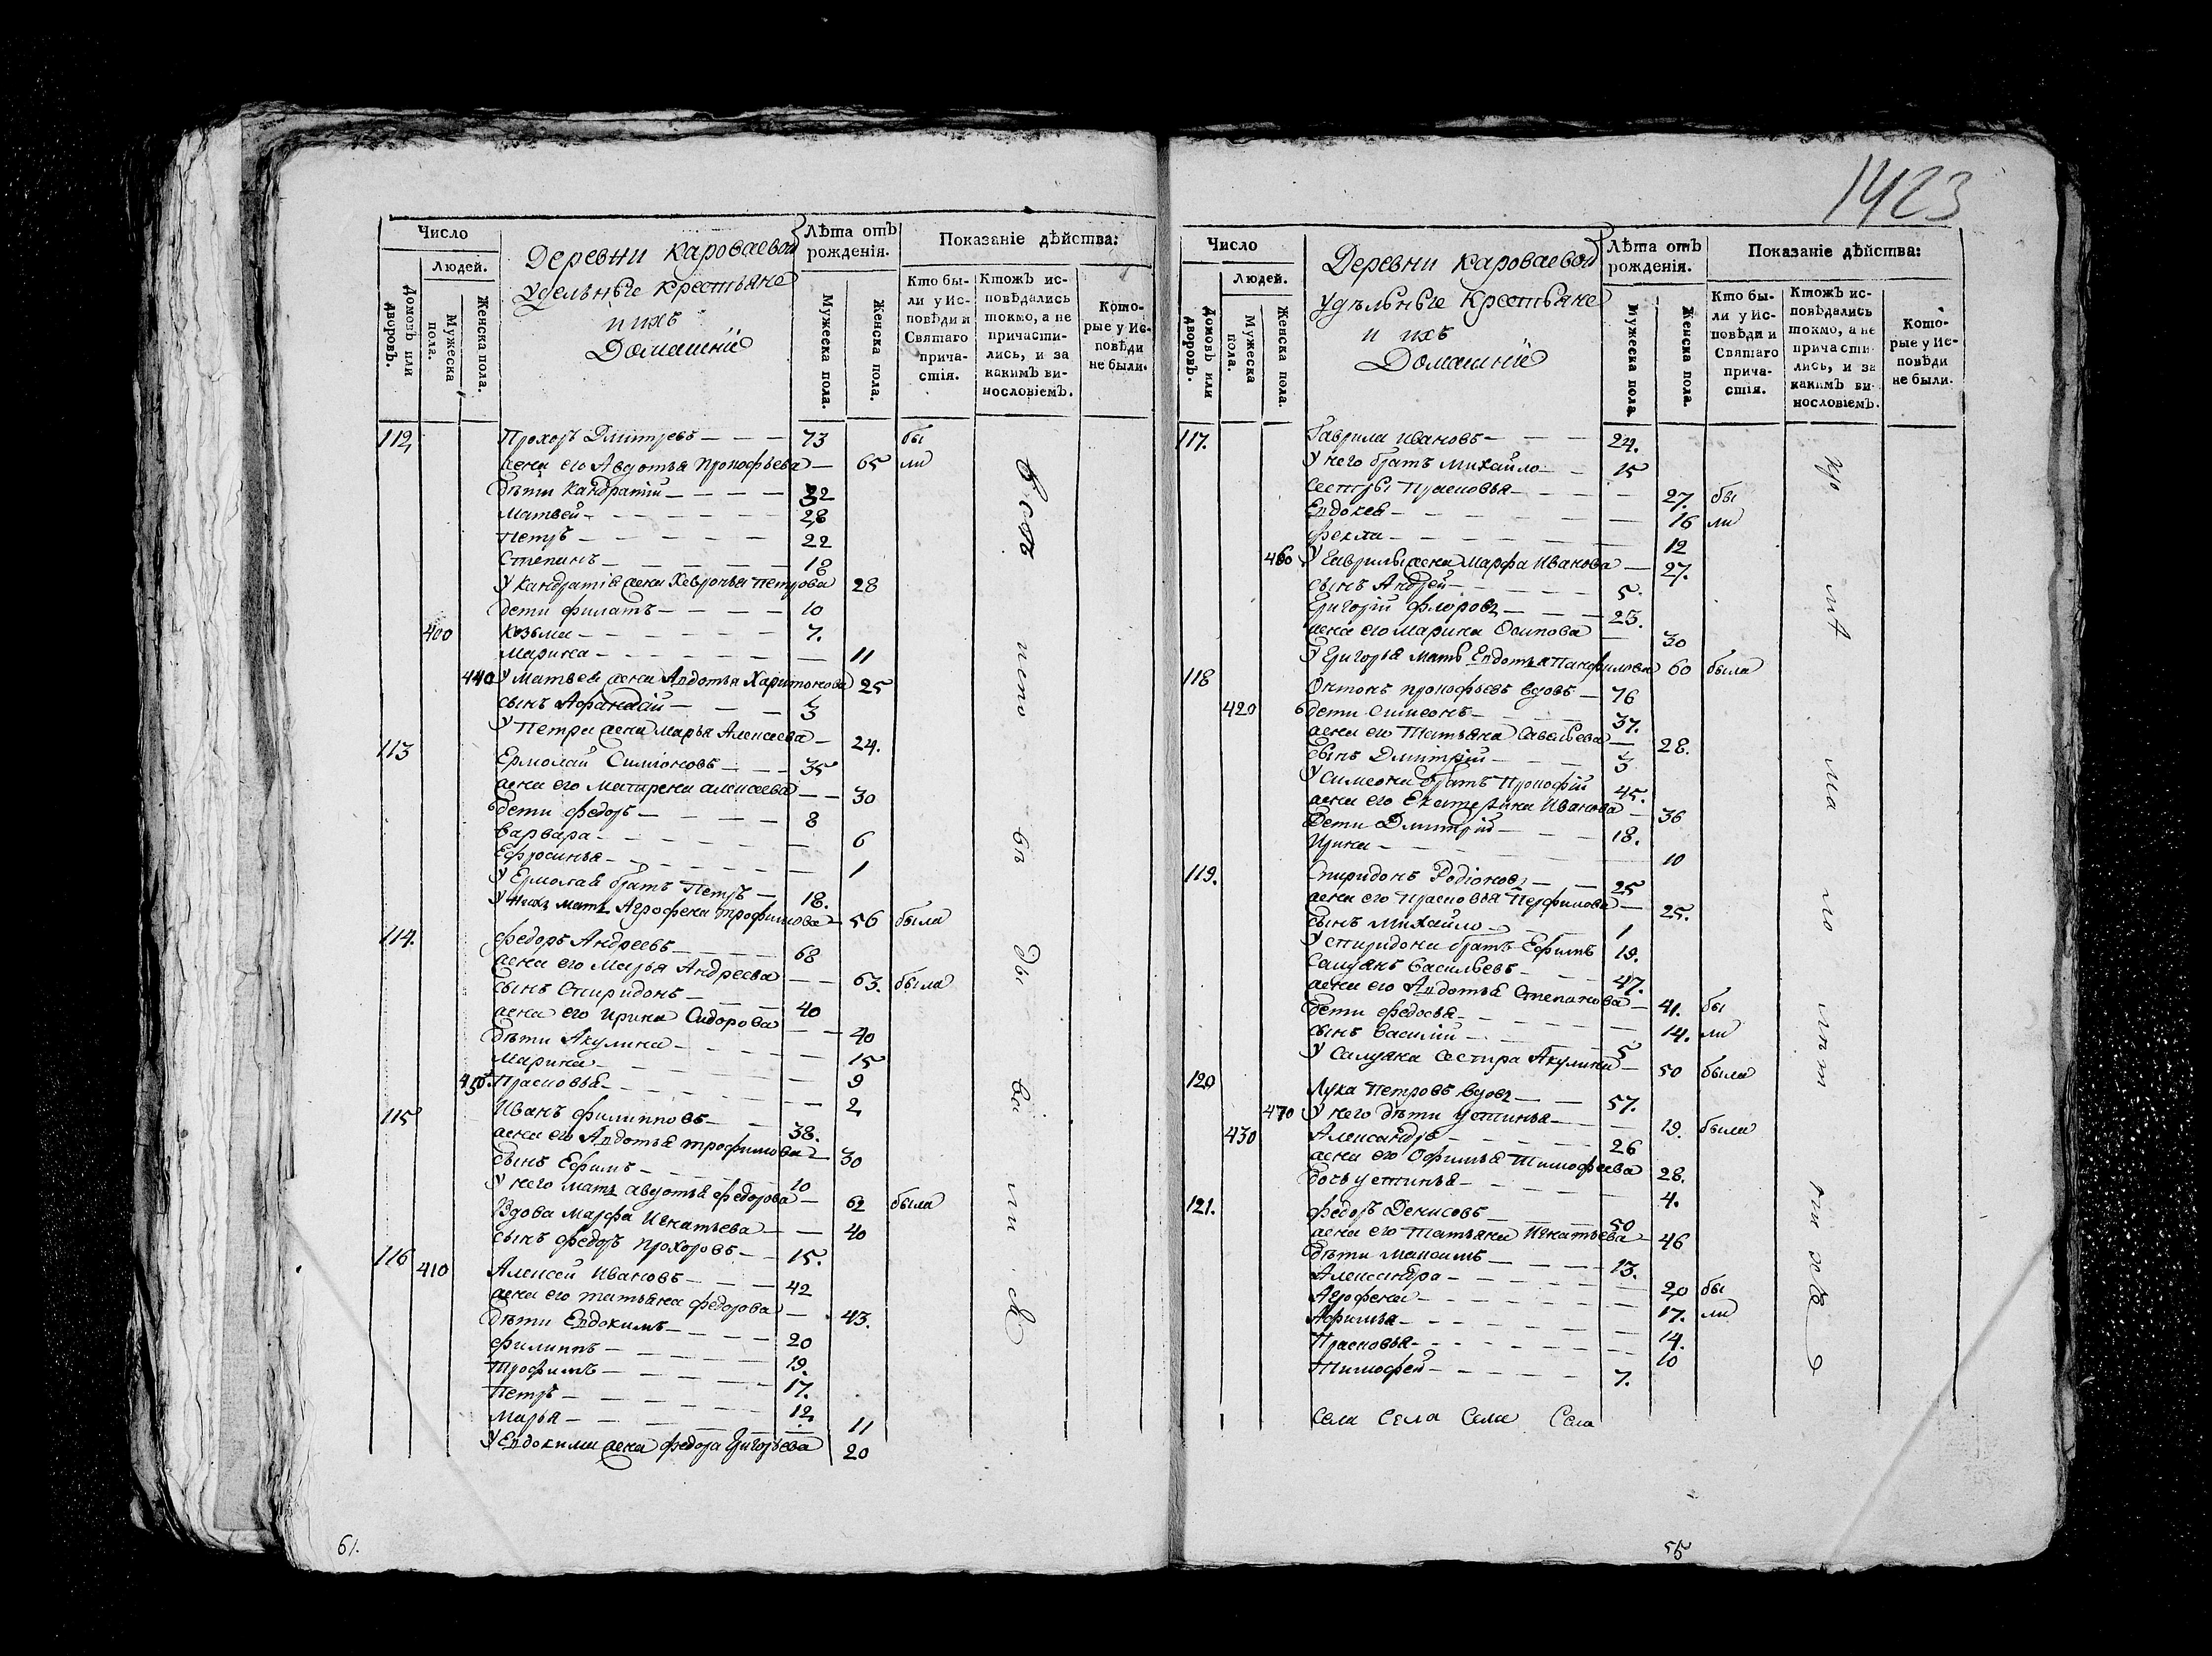 1423
Число
Людей.
Домовъ или дворовъ.
Мужеска пола.
Женска пола.
Деревни Короваевой
Удельные крестьяне
и ихъ
Домашнiе
Лѣта отъ рожденія.
Мужеска пола.
Женска пола.
Показаніе дѣйства:
Кто бы-
ли у Ис-
повѣди и
Святаго
прича-
стія.
Ктожъ ис-
повѣдались
токмо, а не
причасти-
лись, и за
какимъ ви-
нословіемъ.
Кото-
рые у Ис-
повѣди
не были.
112 Прохоръ Дмитревъ 73 бы
жена его Авдотья Прокофьева 65 ли
дѣти Кандратiй 32
Матвей 28
Петръ 22
Степанъ 18
У Кандратiя жена Хевронья Петрова 28
дети Филатъ 10
400 Козьма 7.
Марина 11
440 У Матвея жена Авдотья Харитонова 25
сынъ Афанасiй 3
У Петра жена Марья Алексеева 24.
113 Ермолай Симiоновъ 35
жена его Матрена Алексеева 30
дети Федоръ 8
Варвара 6
Ефросинья 1
У Ермолая братъ Петръ 18.
У нихъ мать Агрофена Трофимова 56 была
114. Федоръ Андреевъ 68
жена его Марья Андреева 63. была
сынъ Спиридонъ 40
жена его Ирина Сидорова 40
дѣти Акулина 15
Марина 9
450. Прасковья 2
115 Иванъ Филипповъ 38.
жена его Авдотья Трофимова 30
сынъ Ефимъ 10
У него мать Авдотья Федорова 62 была
Вдова Марфа Игнатьева 40
сынъ Федоръ Прохоровъ 15.
116 410 Алексей Ивановъ 42
жена его Татьяна Федорова 43.
дѣти Евдокимъ 20
Филиппъ 19.
Трофимъ 17.
Петръ 12.
Марья 11
У Евдокима жена Федора Григорьева 20
61.
Число
Людей.
Домовъ или дворовъ.
Мужеска пола.
Женска пола.
Деревни Короваевой
удѣльные Крестьяне
и ихъ
Домашнiе
Лѣта отъ рожденія.
Мужеска пола.
Женска пола.
Показаніе дѣйства:
Кто бы-
ли у Ис-
повѣди и
Святаго
прича-
стія.
Ктожъ ис-
повѣдались
токмо, а не
причасти-
лись, и за
какимъ ви-
нословіемъ.
Кото-
рые у Ис-
повѣди
не были.
117. Гаврила Ивановъ 24.
У него братъ Михайло 15
сестры Прасковья 27. бы
Евдокея 16 ли
Фекла 12
460 У Гаврилы жена Марфа Иванова 27.
сынъ Андрей 5.
Григорiй Флоровъ 23.
жена его Марина Осипова 30
У Григорья мать Евдотья Панфилова 60 была
118 Онтонъ Прокофьевъ вдовъ 76
420 дети Симеонъ 37.
жена его Татьяна Савельева 28.
сынъ Дмитрiй 3
У Симеона братъ Прокофiй 45.
жена его Екатерина Иванова 36
Дети Дмитрiй 18.
Ирина 10
119. Спиридонъ Родiоновъ 25
жена его Прасковья Перфилова 25.
сынъ Михайло 1
У Спиридона братъ Ефимъ 19.
Салуянъ Васильевъ 47.
жена его Авдотья Степанова 41. бы
дети Федосья 14. ли
сынъ Василiй 5
У Салуяна сестра Акулина 50 была
120 Лука Петровъ вдовъ 57.
470 У него дѣти Устинья 19. была
430 Александръ 26
жена его Офимья Тимофеева 28.
дочь Устинья 4.
121. Федоръ Денисовъ 50
жена его Татьяна Игнатьева 46
дѣти Максимъ 13.
Александра 20 бы
Агрофена 17. ли
Афимья 14.
Прасковья 10
Тимофей 7.
Села Села Села Села
55